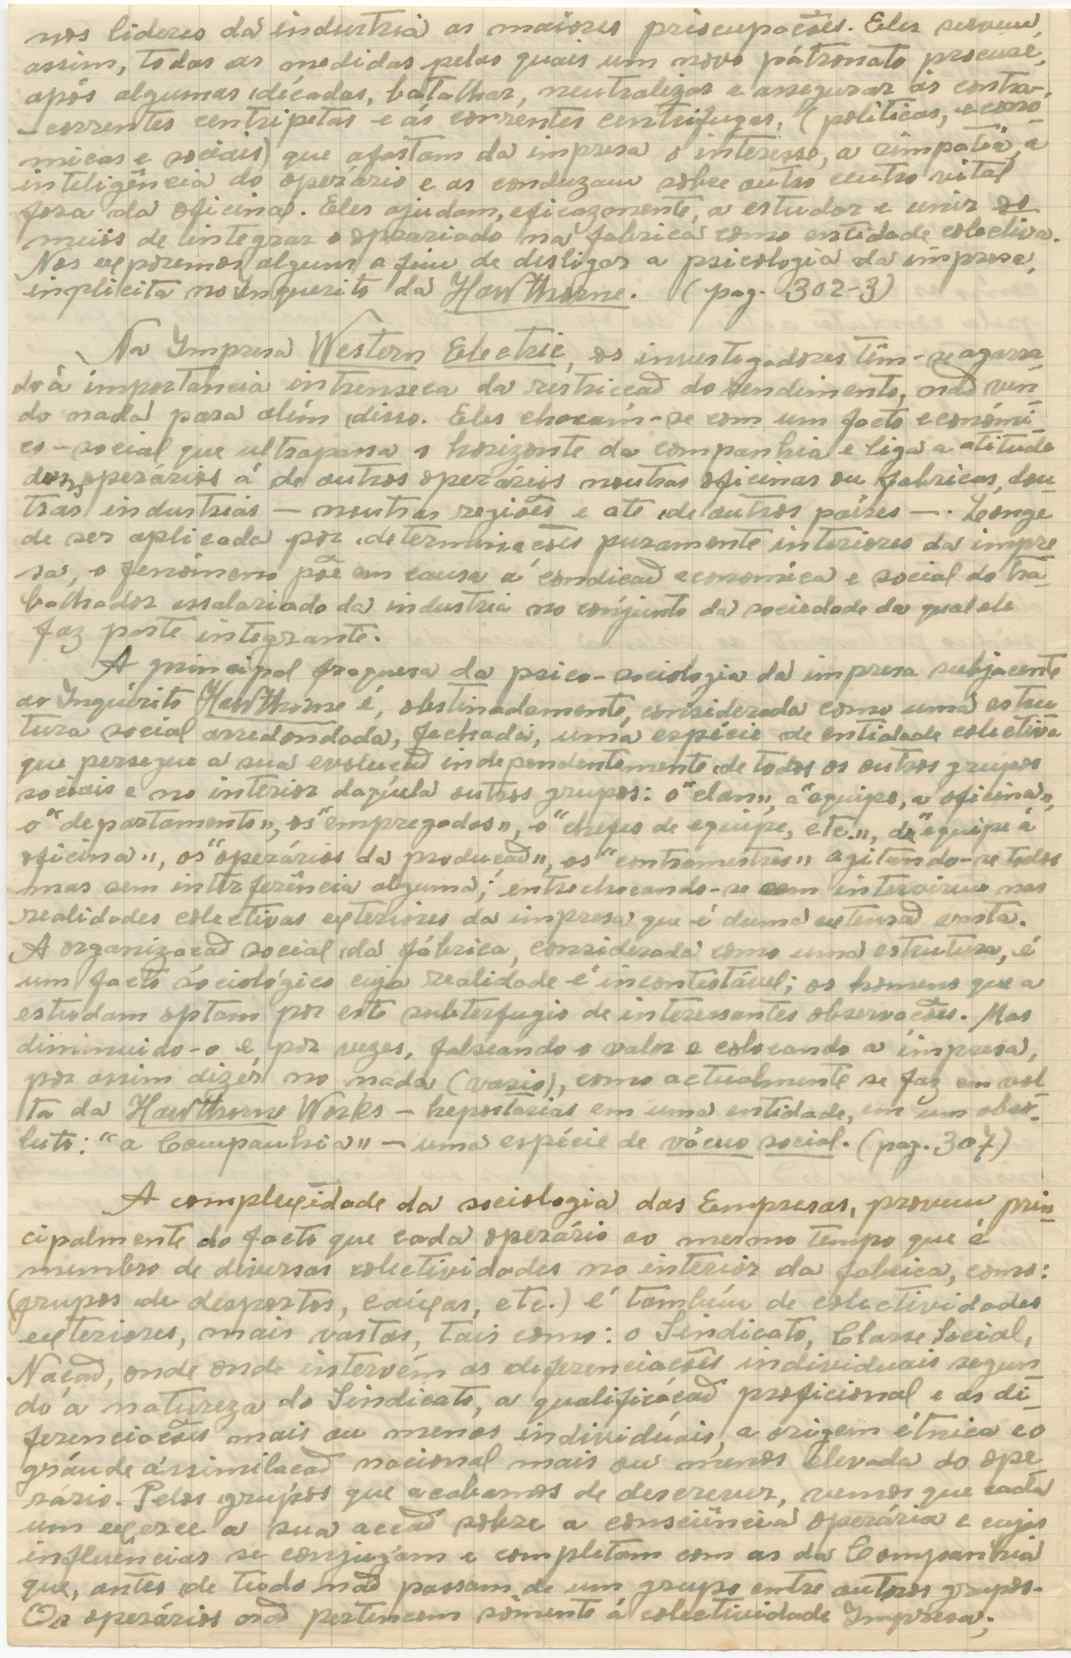 nos lideres da industria as maiores priocupações. Eles servem,
assim, todas as medidas pelas quais um novo pátronato procure,
após algumas décadas, batalhar, neutralizar e assegurar as contra-
-correntes centripetas e ás correntes centrifugas, (politicas, econó
micas e sociais) que afastam da impresa o interesse, a simpatia, a
inteligência do operário e as conduzam sobre outro centro vital
fora da oficina. Eles ajudam, eficazmente, a estudar e unir os
meiôs de integrar o oprariado na fabrica como entidade colectiva.
Nos exporemos alguns a fim de desligar a psicologia da impresa,
implicita no inquerito da Hawthorne. (pag. 302-3)
Na Impresa Western Electric, os investigadores têm-se agarra
do á importancia intrenseca da restricão do rendimento, não ven
do nada para além disso. Eles chocam-se com um facto económi
co-social que ultrapassa o horizonte da companhia e liga a atitude
dos operários á de outros operários noutras oficinas ou fabricas, dou
tras industrias — noutras regiões e até de outros países —. Longe
de ser aplicada por determinações puramente interiores da impre
sa, o fenómeno põe em causa a condicão económica e social do tra
balhador assalariado da industria no conjunto da sociedade da qual ele
faz parte integrante.
A principal fraquesa da psico-sociologia da impresa subjacente
ao Inquérito Hawthorne é, obstinadamente, considerada como uma estru
tura social arredondada, fechada, uma espécie de entidade colectiva
que persegue a sua evolucão independentemente de todos os outros grupos
sociais e no interior daquela outros grupos: o "clan", a "equipe, a oficina",
o "departamento", os "empregados", o "chefes de equipe, etc.", da "equipe á
oficina", os "operários da producão", os "contramestres" agitando-se todos
mas sem interferência alguma; entrechocando-se sem intervirem nas
realidades colectivas exteriores da impresa que é duma extensão vasta.
A organizacão social da fábrica, considerada como uma estrutura, é
um facto sociológico cuja realidade é incontestável; os homens que a
estudam optam por este subterfugio de interessantes observações. Mas
diminuido-o e, por vezes, falseando o valor e colocando a impresa,
por assim dizer no nada (vasio), como actualmente se faz em vol
ta da Hawthorne Works — hepostarias em uma entidade, em um abso-
luto: "a Companhia" — uma espécie de vácuo social. (pag. 307)
A complexidade da sociologia das Empresas, provem prin
cipalmente do facto que cada operário ao mesmo tempo que é
membro de diversas colectividades no interior da fabrica, como:
(grupos de desportos, caixas, etc.) é também de colectividades
exteriores, mais vastas, tais como: o Sindicato, Classe Social,
Nacão, onde onde intervém as diferenciações individuais segun
do a natureza do Sindicato, a qualificacão proficional e as di-
ferenciacões mais ou menos individuais, a origem étnica e o
gráu de assimilacão nacional mais ou menos elevada do ope
rário. Pelos grupos que acabamos de descrever, vemos que cada
um exerce a sua accão sobre a consciência operária e cujas
influências se conjugam e completam com as da Companhia
que, antes de tudo não passam de um grupo entre outros grupos.
Os operários não pertencem sómente á colectividade Impresa;